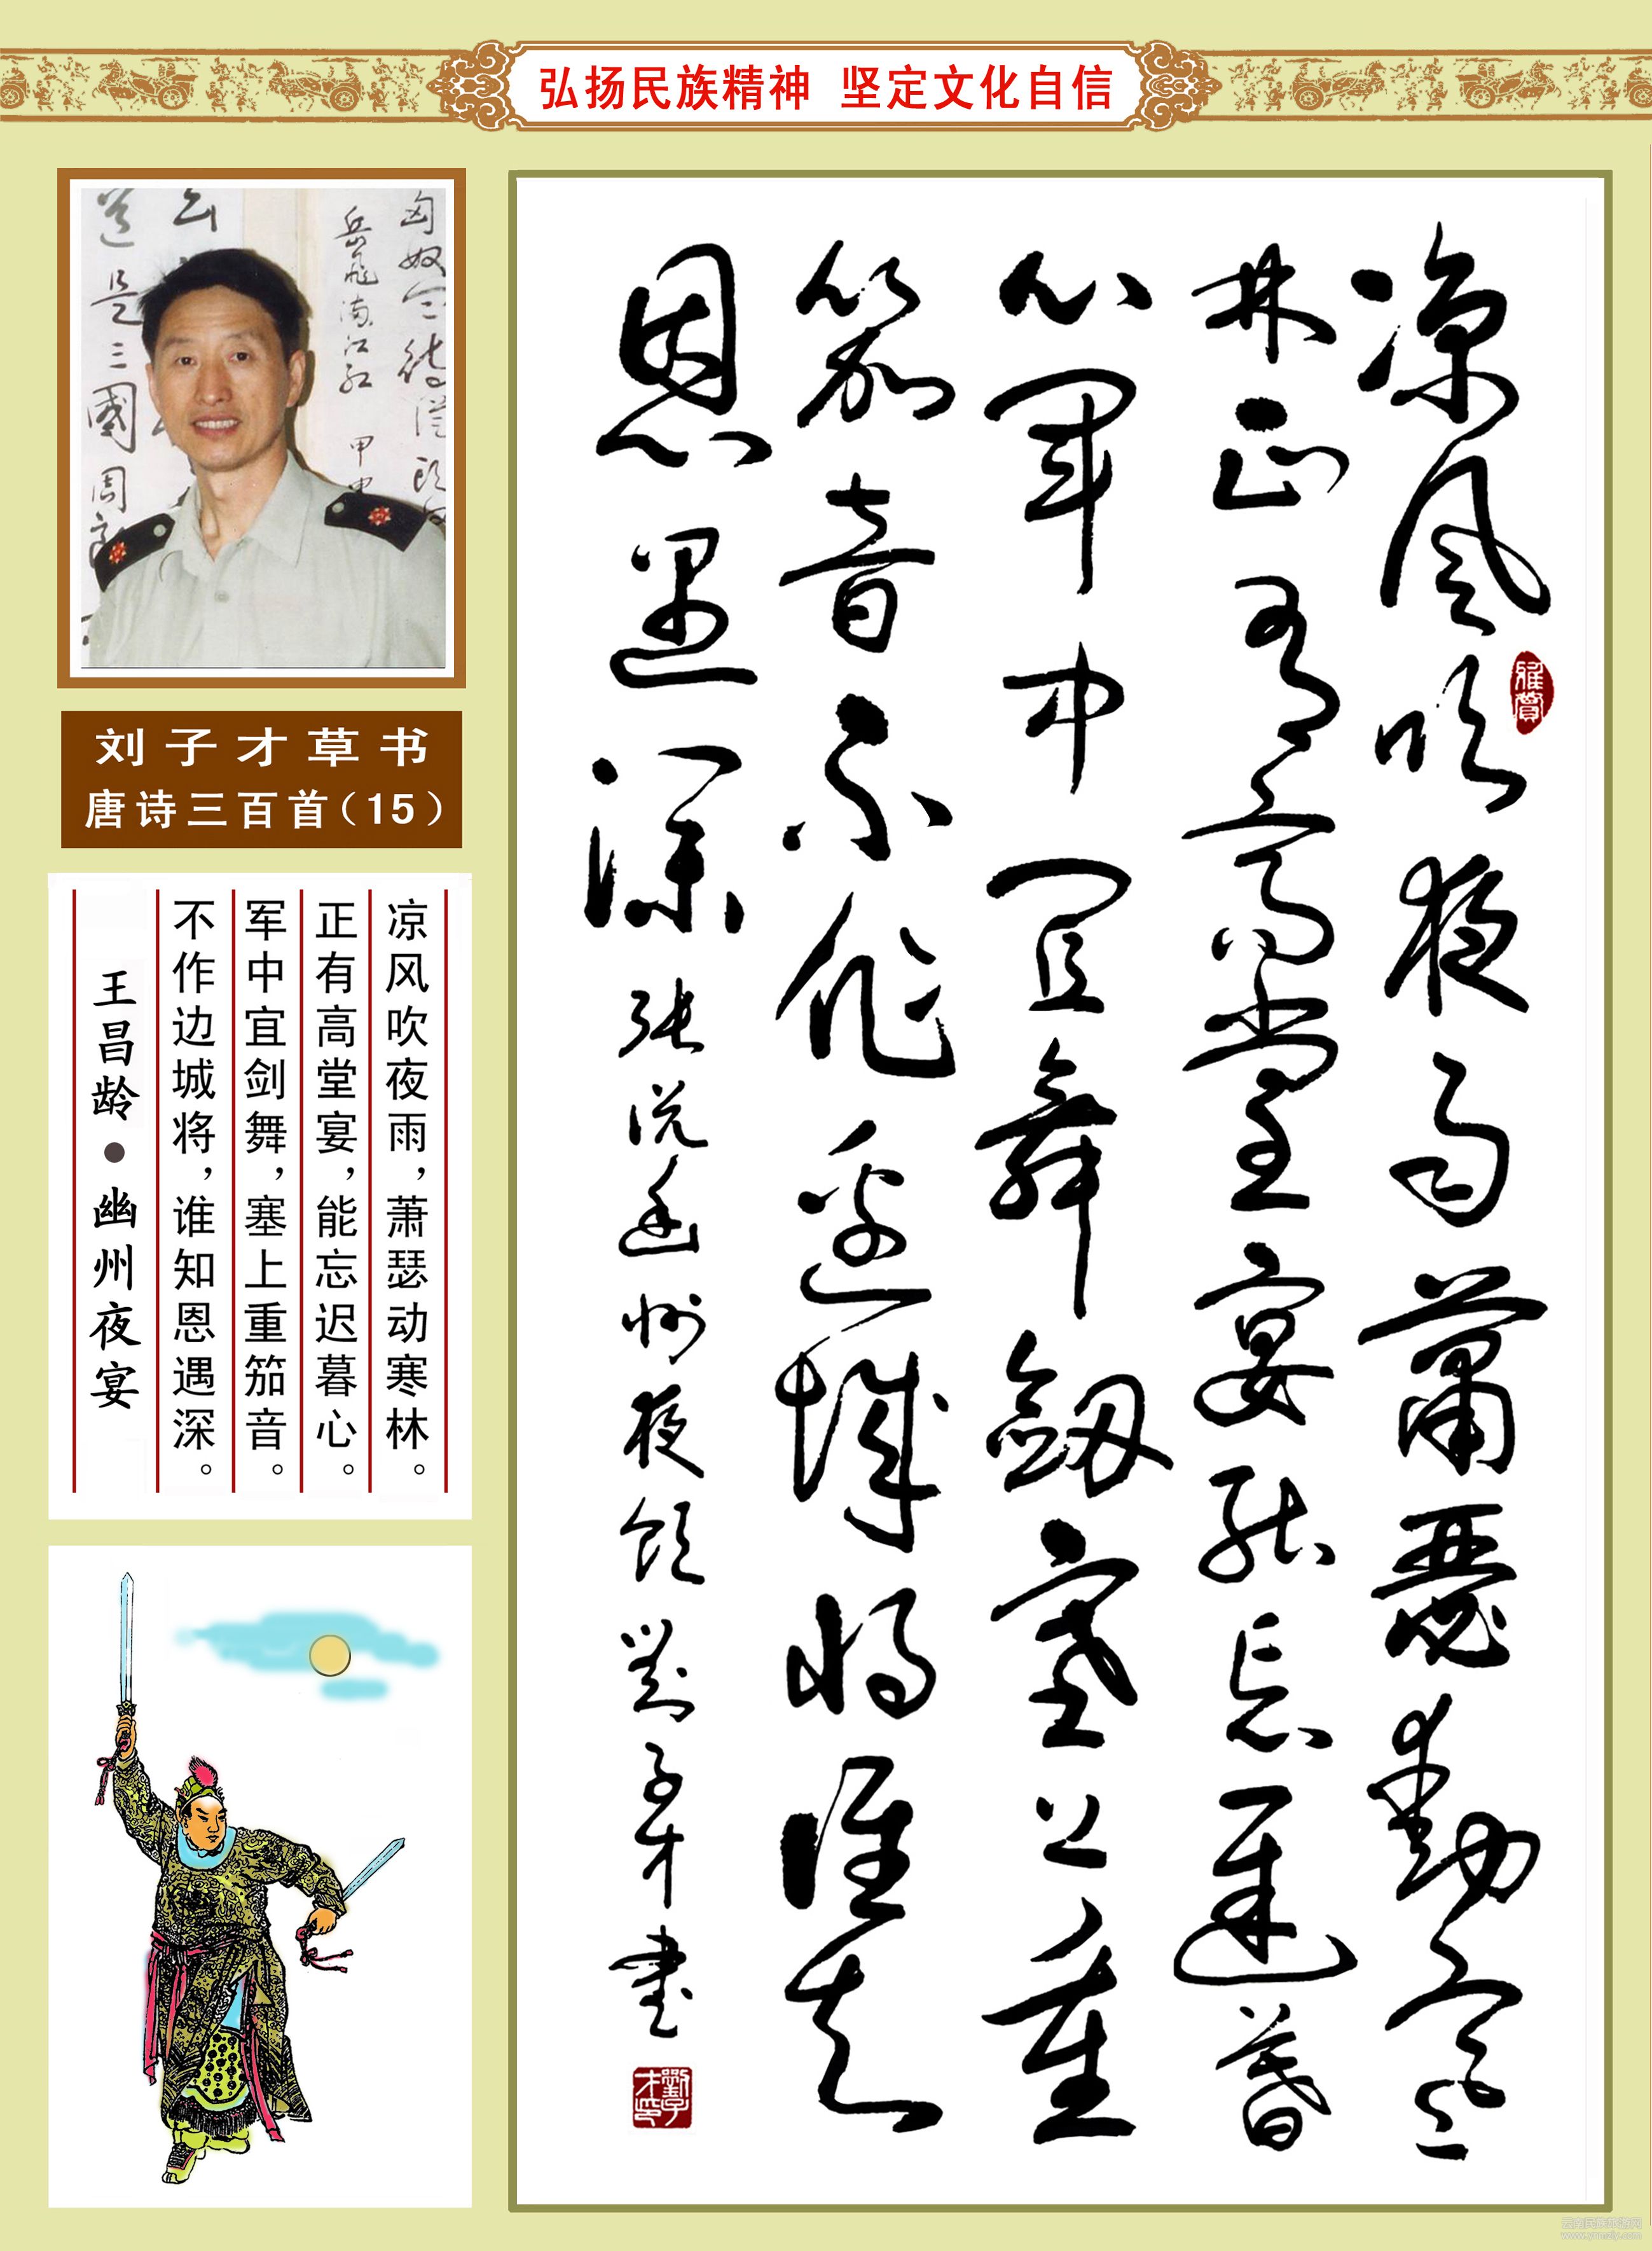 弘扬民族精神 坚定文化自信
刘子才草书
唐诗三百首(15)
凉风吹夜雨，萧瑟动寒林。
正有高堂宴，能忘迟暮心。
军中宜剑舞，塞上重笳音。
不作边城将，谁知恩遇深。
王昌龄●幽州夜宴
凉风吹夜雨萧瑟動寒
林正有高堂宴能忘遲暮
心军中宜舞劔塞上重
笳音不作边城将谁知
恩遇深 张说幽州夜饮 劉子才書
雅賞
劉子才印
www.ynmzly.com